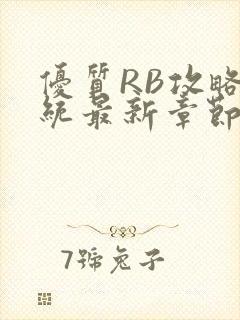 優質RB攻略
統最新章節
7號兔子